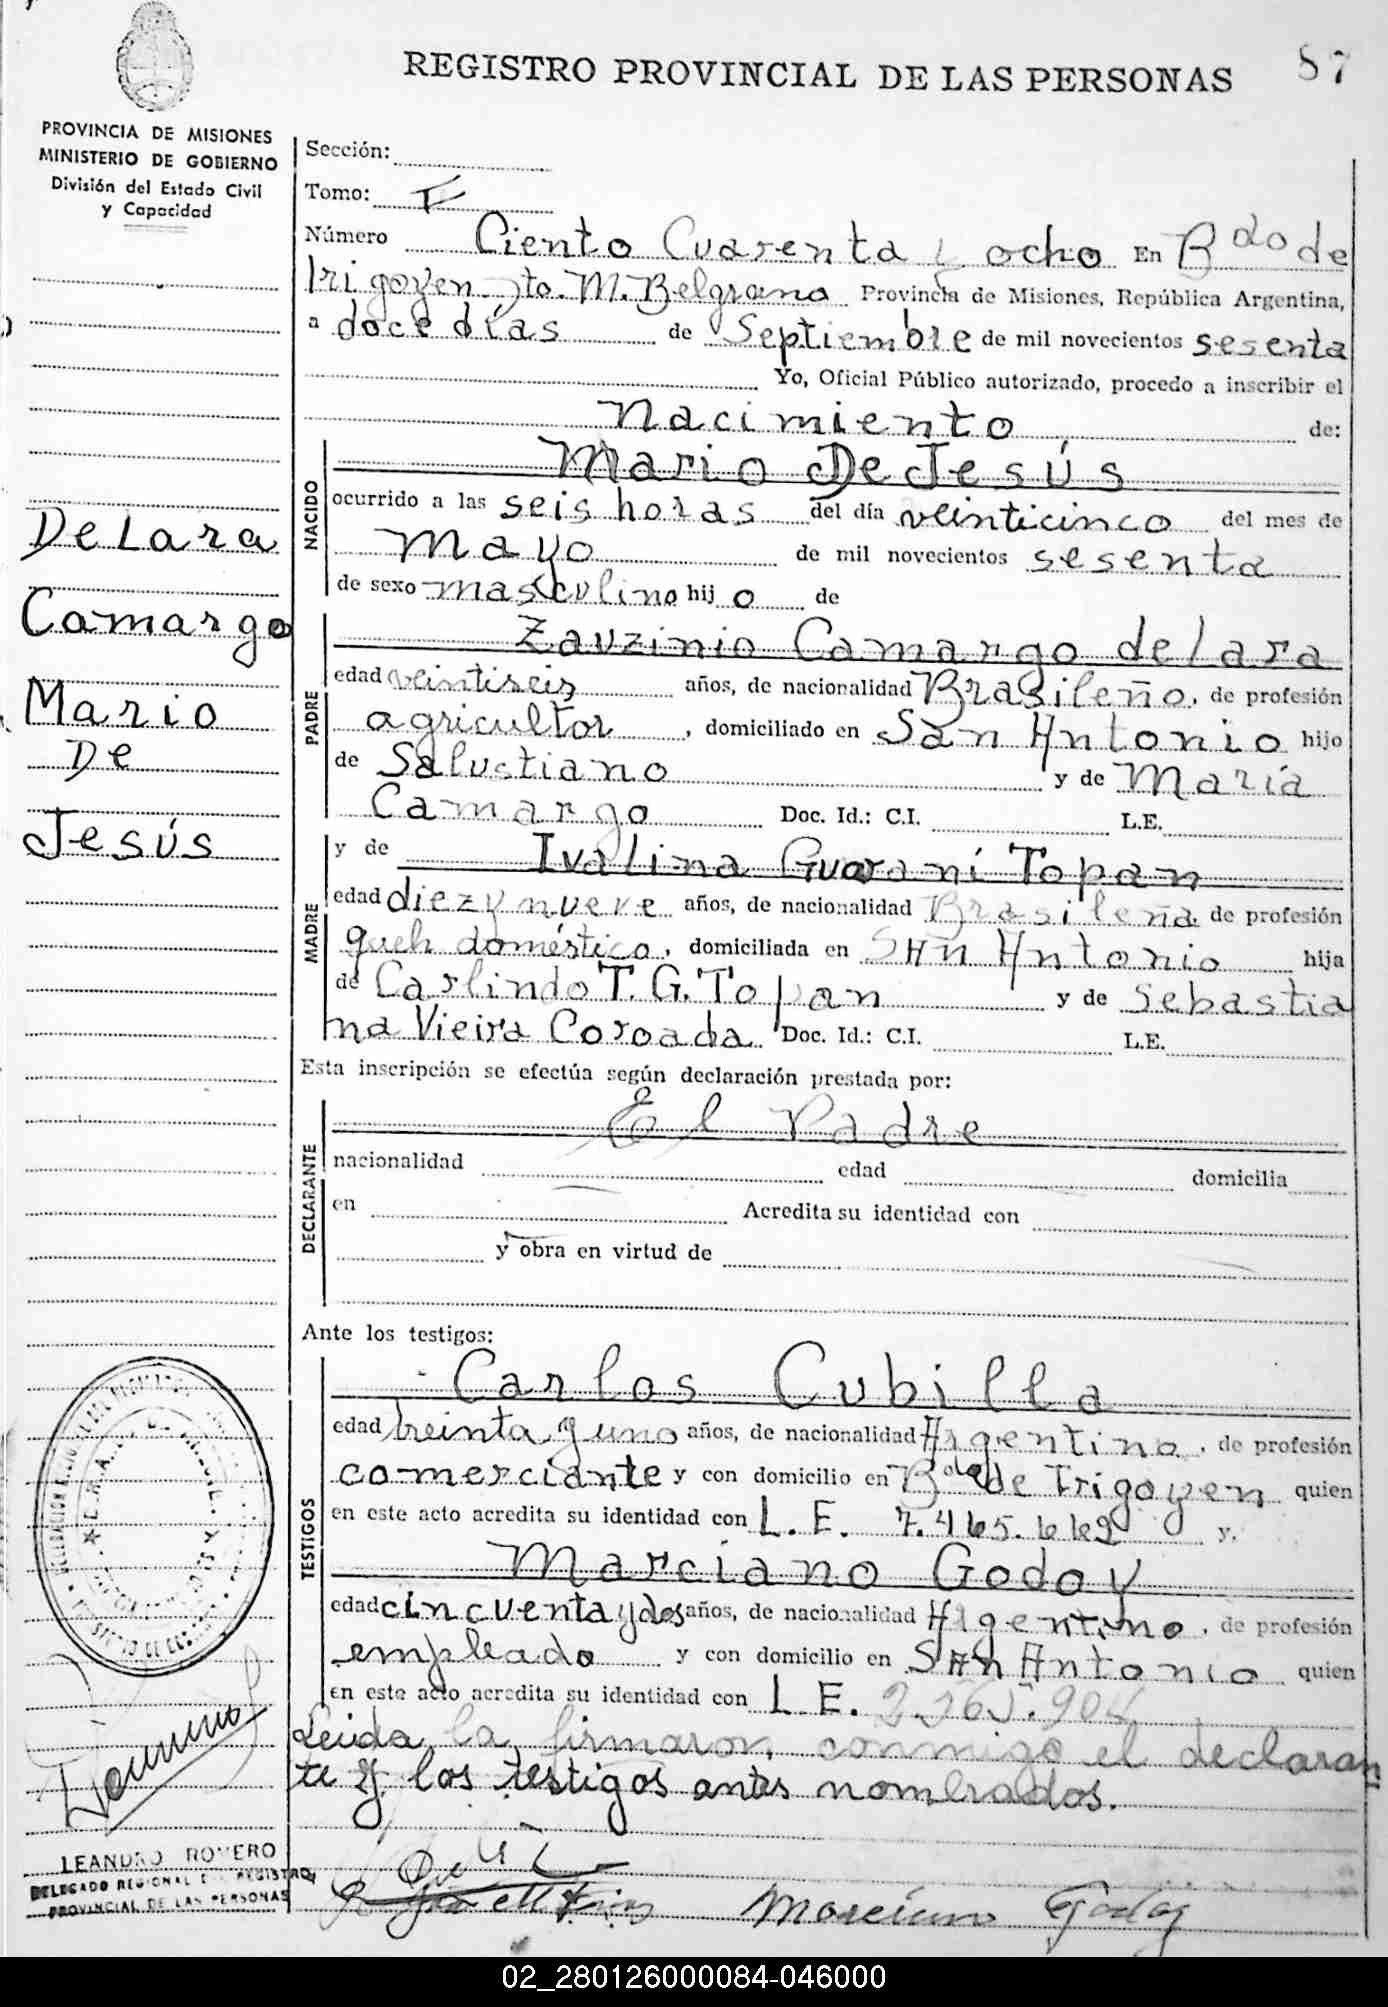 87
REGISTRO PROVINCIAL DE LAS PERSONAS
PROVINCIA DE MISIONES
MINISTERIO DE GOBIERNO
División del Estado Civil
y Capacidad
De Lara
Camargo
Mario
De
Jesús
Sección:
Tomo:
Número Ciento Cuarenta y ocho En Bdo de
Irigoyen Dto. M. Belgrano Provincia de Misiones, República Argentina,
a doce días de Septiembre de mil novecientos sesenta
Yo, Oficial Público autorizado, procedo a inscribir el
nacimiento de:
NACIDO
Mario De Jesús
ocurrido a las seis horas del día veinticinco del mes de
Mayo de mil novecientos sesenta
de sexo masculino hijo de
PADRE
Zauzinio Camargo de lara
edad veintiseis años, de nacionalidad Brasileño, de profesión
agricultor, domiciliado en San Antonio hijo
de Salustiano y de María
Camargo Doc. Id.: C.I. L.E.
MADRE
y de Ivalina Guaraní Topan
edad diez y nueve años, de nacionalidad Brasileña de profesión
queh doméstico, domiciliada en SAN Antonio hija
de Carlindo T. G. Topan y de Sebastia
na Vieira Coroada Doc. Id.: C.I. L.E.
Esta inscripción se efectúa según declaración prestada por:
DECLARANTE
El Padre
nacionalidad edad domicilia
en Acredita su identidad con
y obra en virtud de
Ante los testigos:
TESTIGOS
Carlos Cubilla
edad treinta y uno años, de nacionalidad Argentino, de profesión
comerciante y con domicilio en Bdo de Irigoyen quien
en este acto acredita su identidad con L. E. 7.465.662 y,
Marciano Godoy
edad cincuenta y dos años, de nacionalidad Argentino, de profesión
empleado y con domicilio en SAN Antonio quien
en este acto acredita su identidad con L. E.
Leida la firmaron, conmigo el declaran
te y los testigos antes nombrados.
Marciano Godoy
LEANDRO ROMERO
DELEGADO REGIONAL DEL REGISTRO
PROVINCIAL DE LAS PERSONAS
02_280126000084-046000